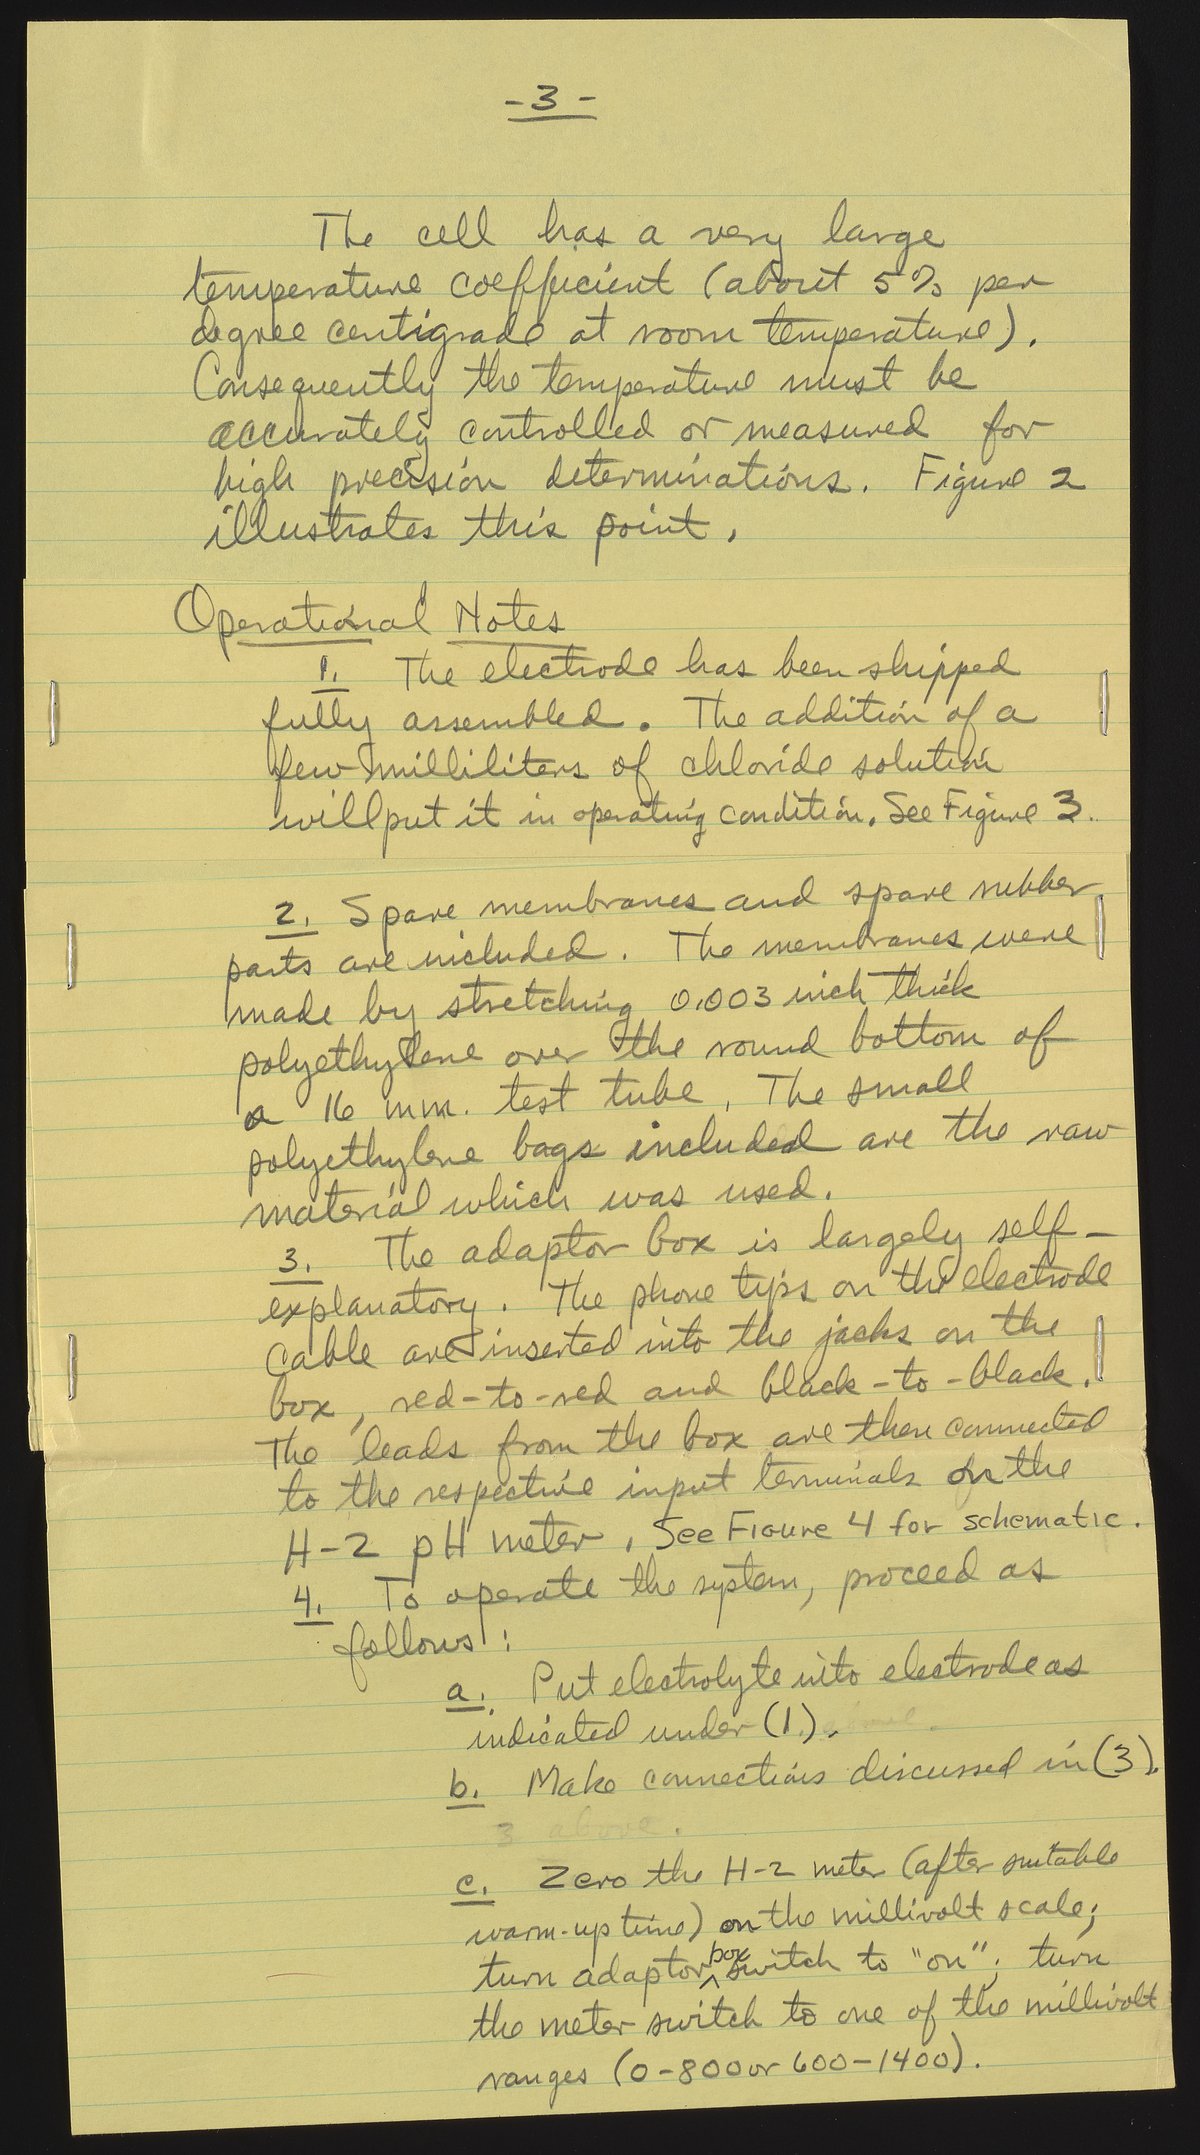 -3-
The cell has a very large
temperature coefficient (about 5% per
degree centigrade at room temperature).
Consequently the temperature must be
accurately controlled or measured for
high precision determinations. Figure 2
illustrates this point.
Operational Notes
1. The electrode has been shipped
fully assembled. The addition of a
few milliliters of chloride solution
will put it in operating condition. See Figure 3.
2. Spare membranes and spare rubber
parts are included. The membranes were
made by stretching 0.003 inch thick
polyethylene over the round bottom of
a 16 mm. test tube. The small
polyethylene bags included are the raw
material which was used.
3. The adaptor box is largely self-
explanatory. The phone tips on the electrode
cable are inserted into the jacks on the
box, red-to-red and black-to-black.
The leads from the box are then connected
to the respective input terminals on the
H-2 pH meter. See Figure 4 for schematic.
4. To operate the system, proceed as
follows:
a. Put electrolyte into electrode as
indicated under (1).
b. Make connections discussed in (3).
3 above.
c. Zero the H-2 meter (after suitable
warm-up time) on the millivolt scale;
turn adaptor box switch to "on"; turn
the meter switch to one of the millivolt
ranges (0-800 or 600-1400).